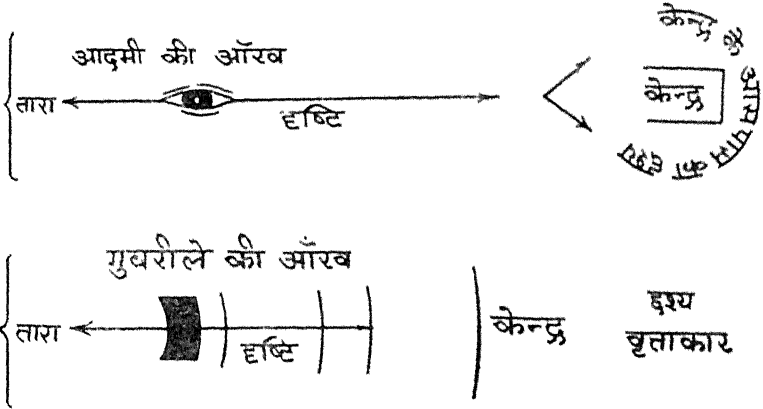 आदमी की आँख
तारा
दृष्टि
केन्द्र
केन्द्र के आसपास का दृश्य
गुबरीले की आँख
तारा
दृष्टि
केन्द्र
दृश्य
वृत्ताकार